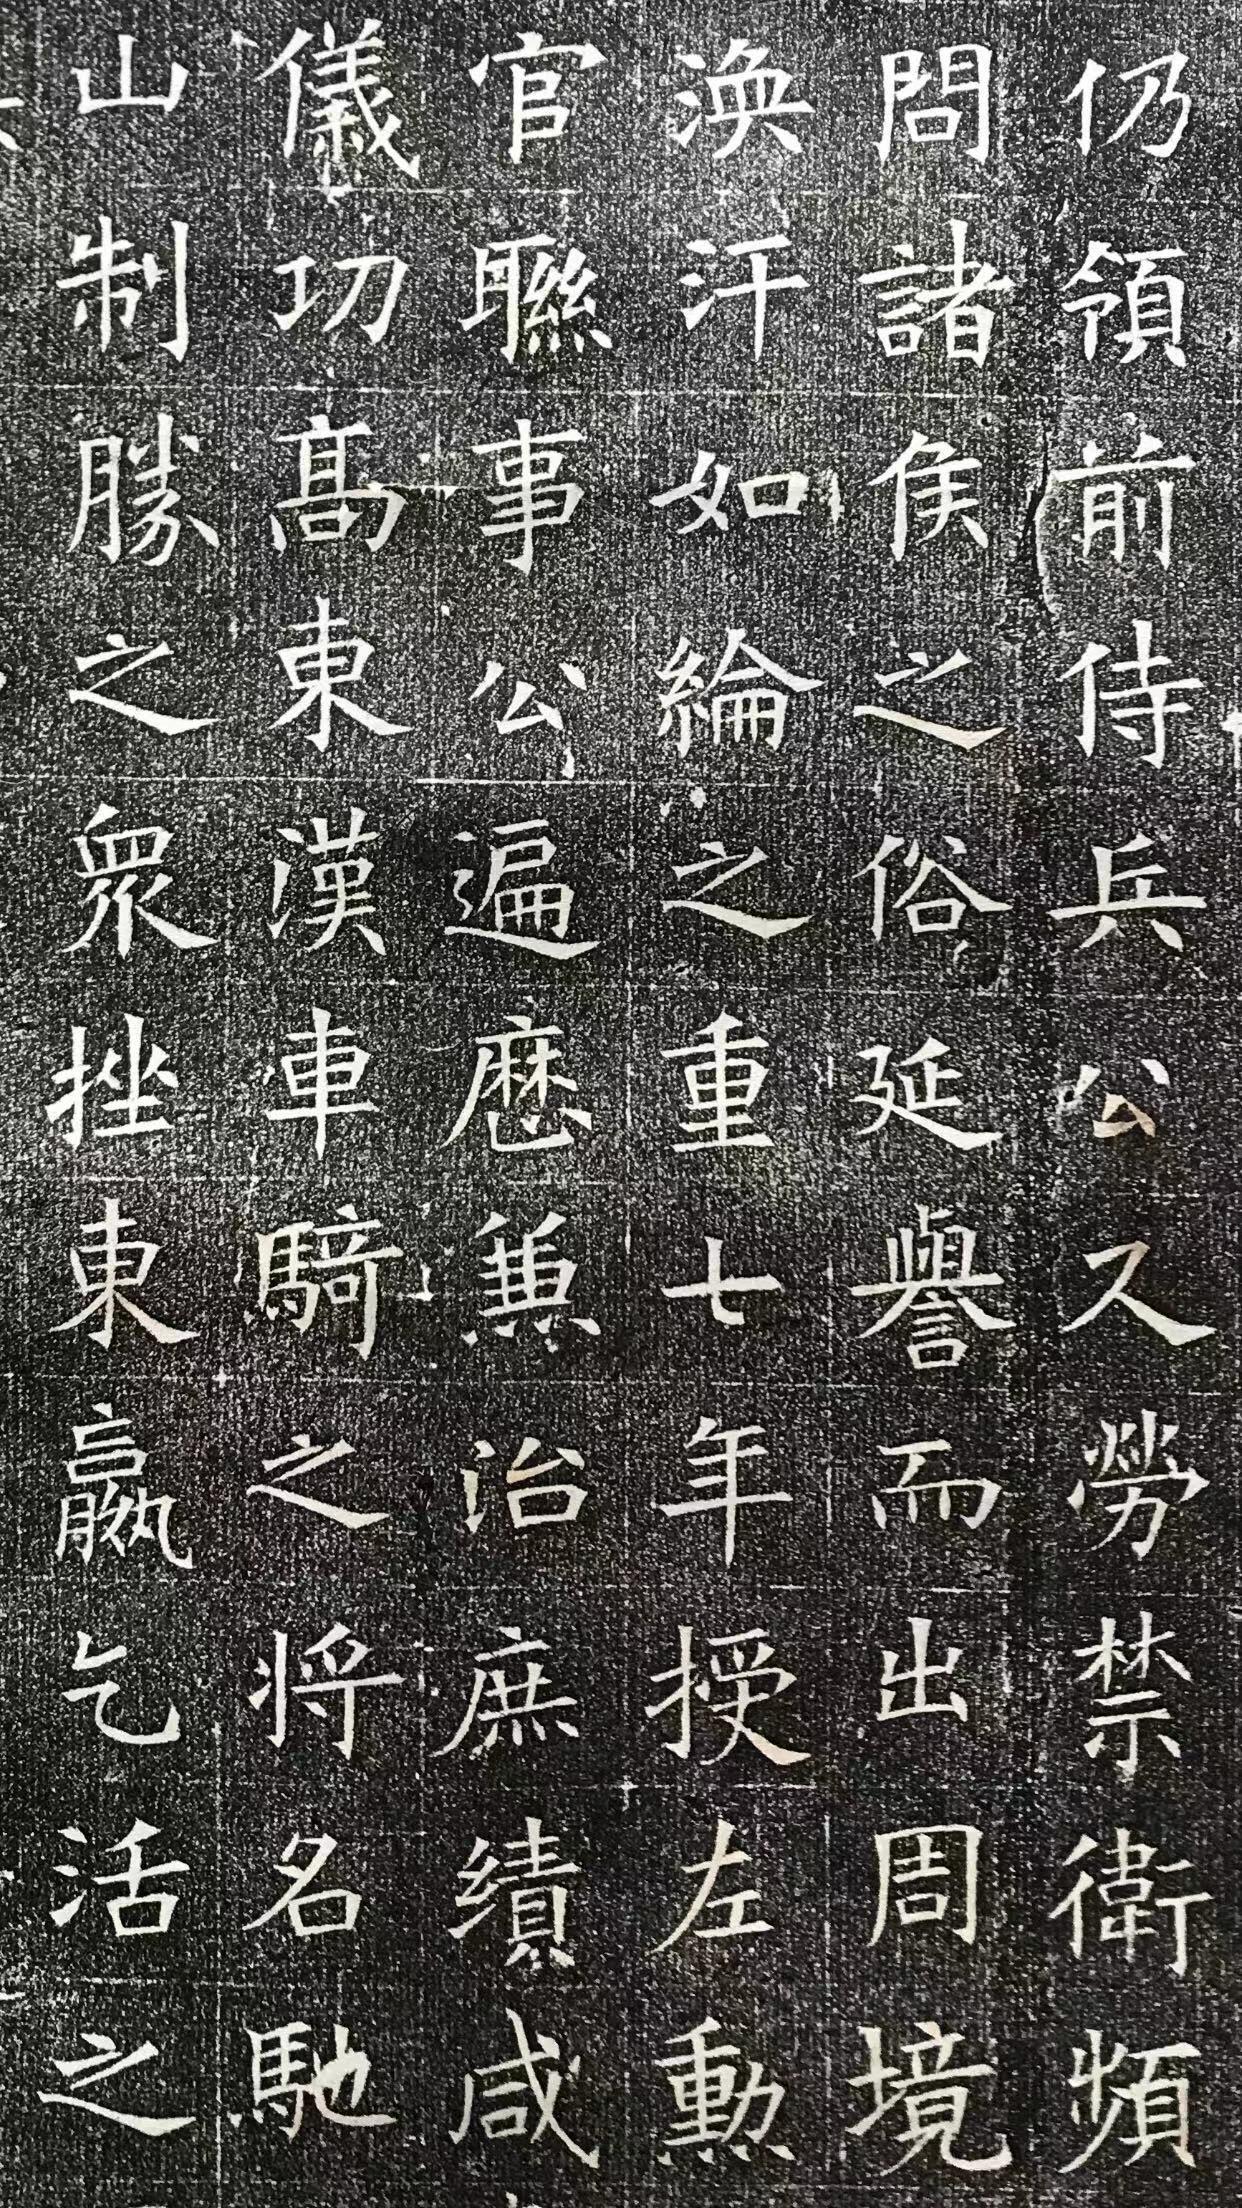 仍領前侍兵公久勞禁衛頻
問諸侯之俗延譽而出周境
渙汗如綸之重七年授左勳
官聯事公遍歷兼治庶績咸
儀功高東漢車騎之將名馳
山制勝之眾挫東嬴乞活之